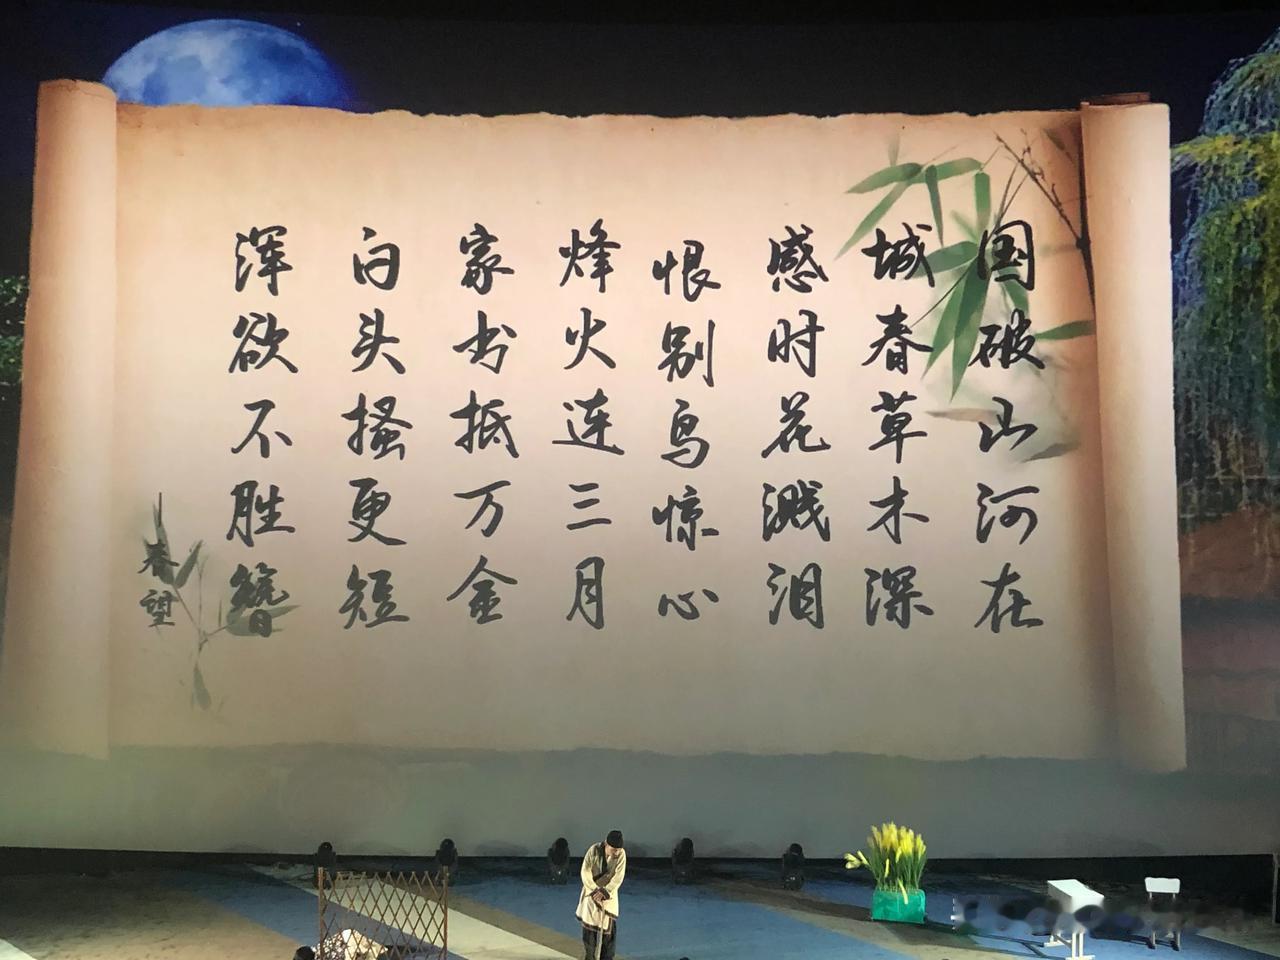 国破山河在
城春草木深
感时花溅泪
恨别鸟惊心
烽火连三月
家书抵万金
白头搔更短
浑欲不胜簪
春望